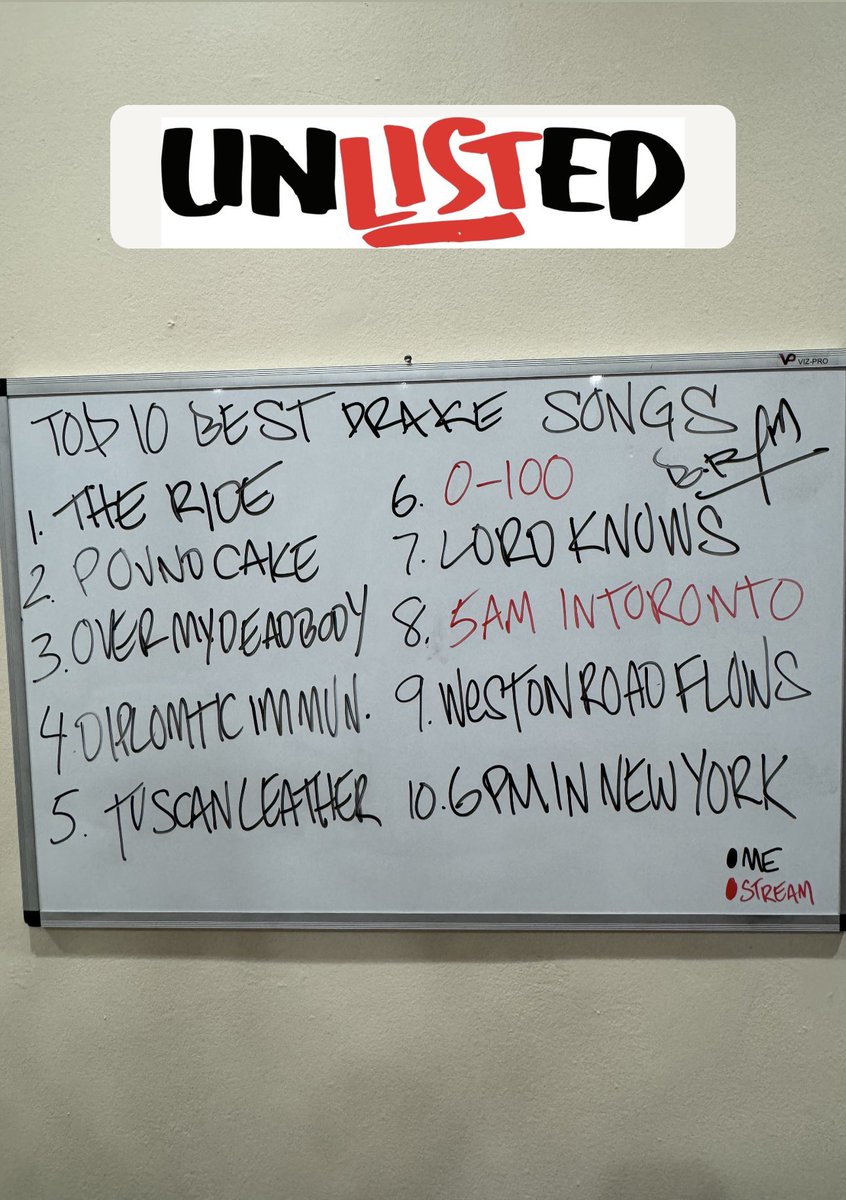 UNLISTED
VP VIZ-PRO
TOP 10 BEST DRAKE SONGS
1. THE RIDE
2. POUND CAKE
3. OVER MY DEAD BODY
4. DIPLOMTIC IMMUN.
5. TUSCAN LEATHER
6. 0-100
7. LORD KNOWS
8. 5AM IN TORONTO
9. WESTON ROAD FLOWS
10. 6PM IN NEW YORK
ME
STREAM